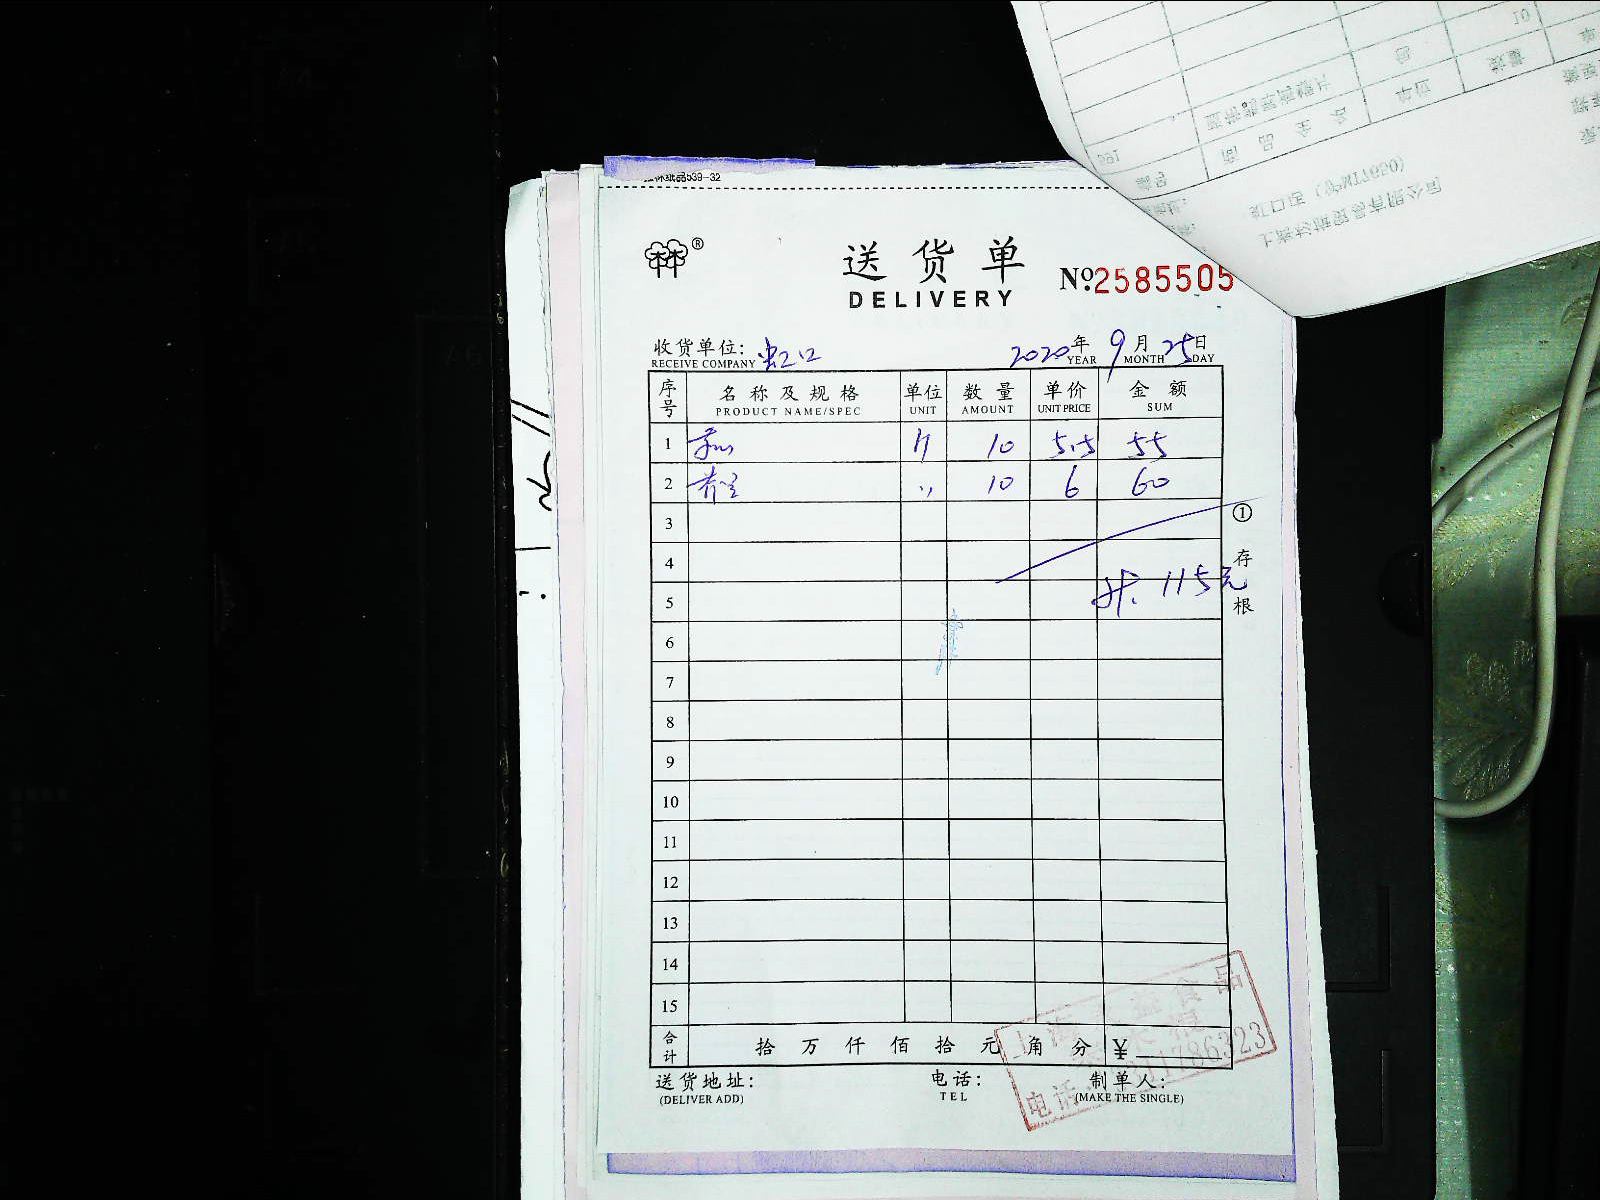 送货单
DELIVERY
№ 2585505
收货单位: 虹口
RECEIVE COMPANY
2020年 9月 25日
YEAR MONTH DAY
序号 名称及规格 单位 数量 单价 金额
PRODUCT NAME/SPEC UNIT AMOUNT UNIT PRICE SUM
1 斤 10 5.5 55
2 〃 10 6 60
3
4
5 共: 115元
6
7
8
9
10
11
12
13
14
15
合计 拾 万 仟 佰 拾 元 角 分 ¥
送货地址: 电话: 制单人:
(DELIVER ADD) TEL (MAKE THE SINGLE)
① 存根
上海 食品
电话
编号 商品全名 单位 数量
虹口店